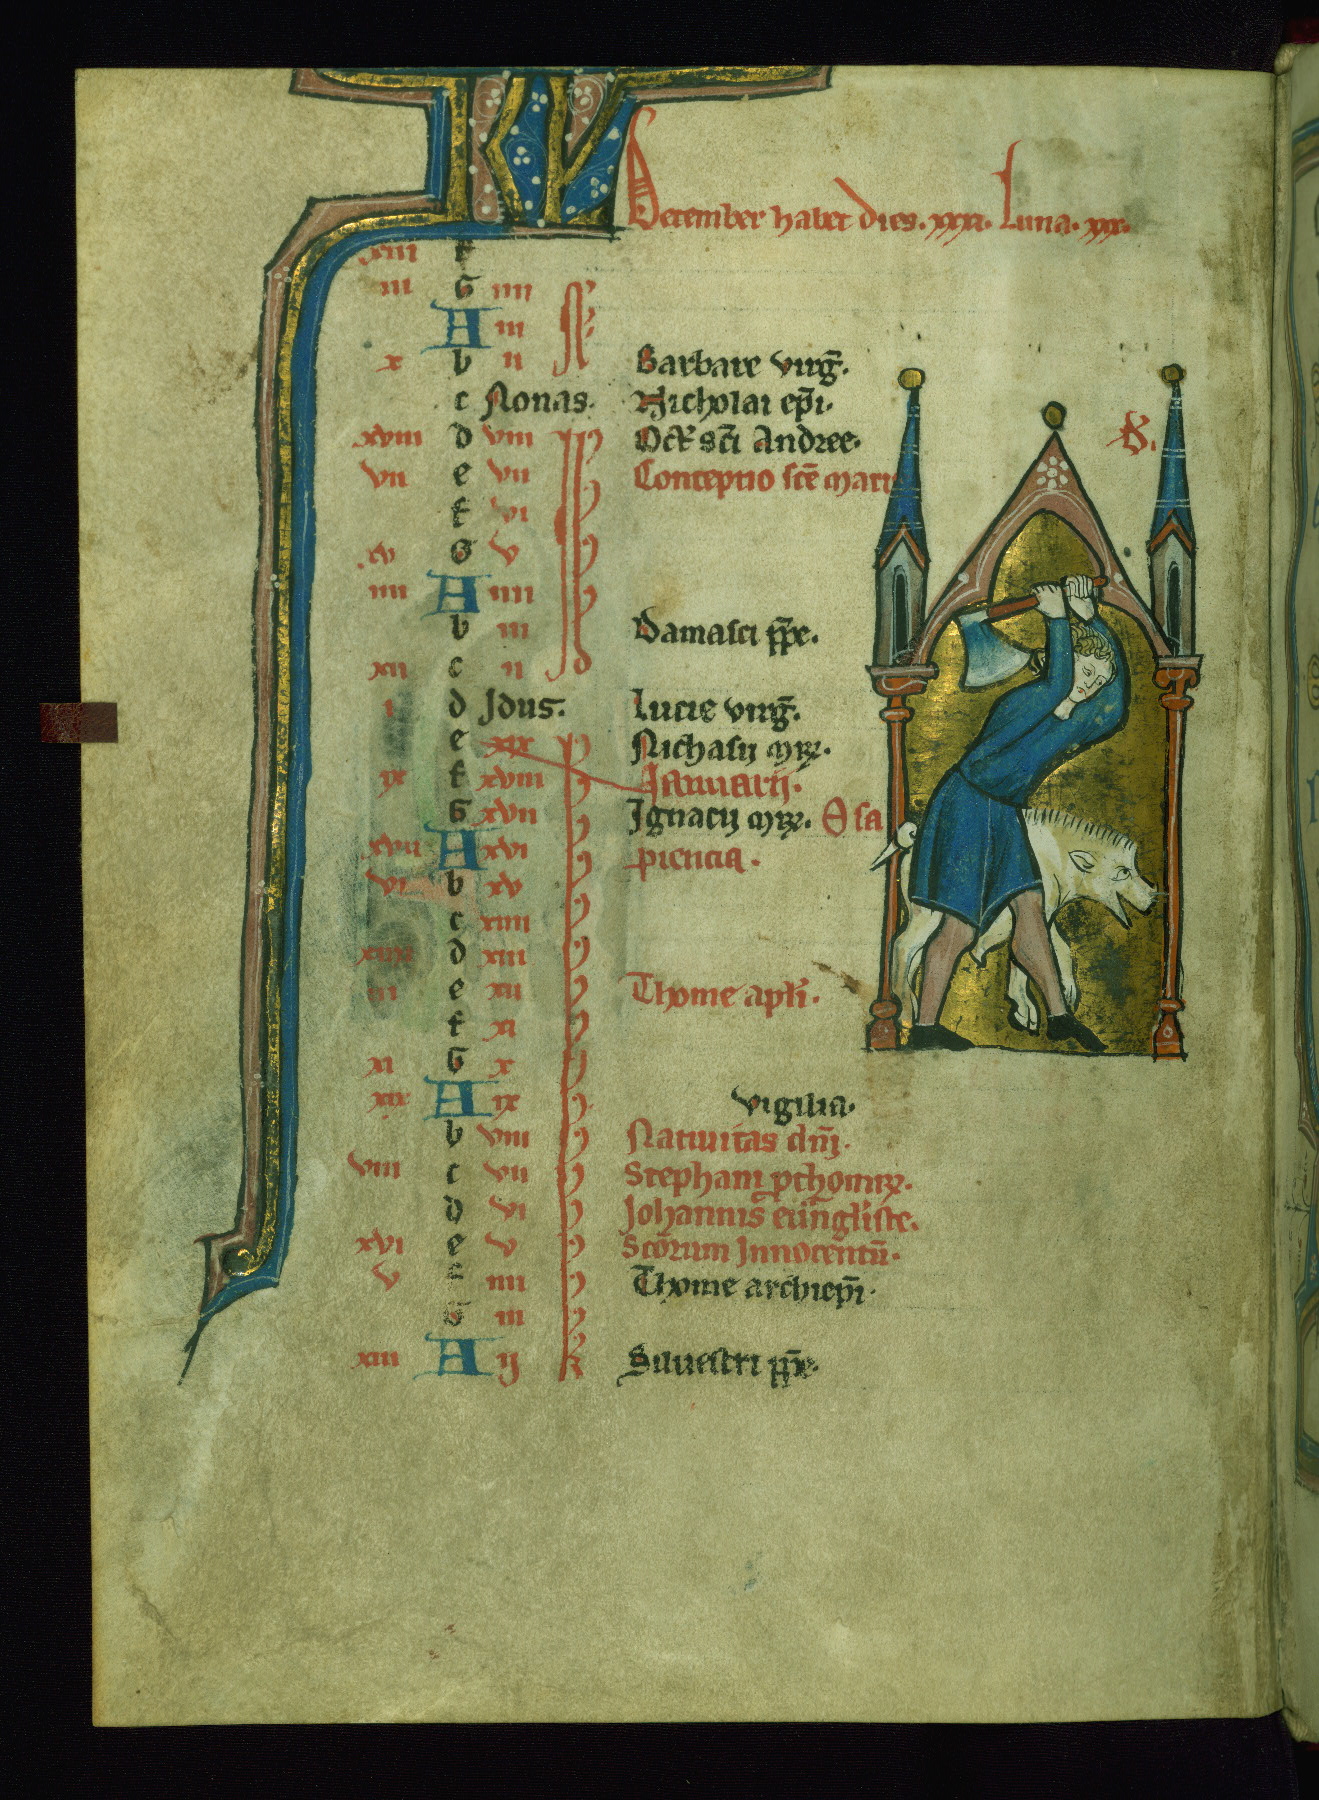 KL December habet dies. xxxi. Luna. xxx.
xiii f
iii G iiii N
A iii
x b ii Barbare virḡ.
c Nonas. Nicholai ep̄i.
xviii d viii Id Oct̄ sc̄i Andree.
vii e vii Conceptio sc̄e Marie
f vi
xv G v
iiii A iiii
b iii Damasci pp̄e.
xii c ii
i d Idus. Lucie virḡ.
e xix kl Nichasij mr̄.
ix f xviii Januarij.
G xvii Ignacij mr̄. O sa
xvii A xvi piencia.
vi b xv
c xiiii
xiiii d xiii
iii e xii Thome apl̄i.
f xi
xi G x
xix A ix vigilia.
b viii Natiuitas dn̄i.
viii c vii Stephani pthomr̄.
d vi Johannis eūngliste.
xvi e v Scōrum Innocentū.
v f iiii Thome archiep̄i.
G iii
xiii A ij k Siluestri pp̄e.